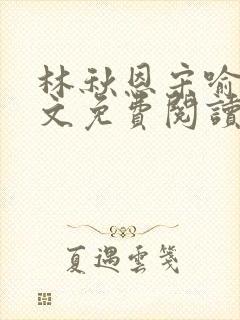 林秋恩宋喻
文免費閱讀
夏遇雲箋